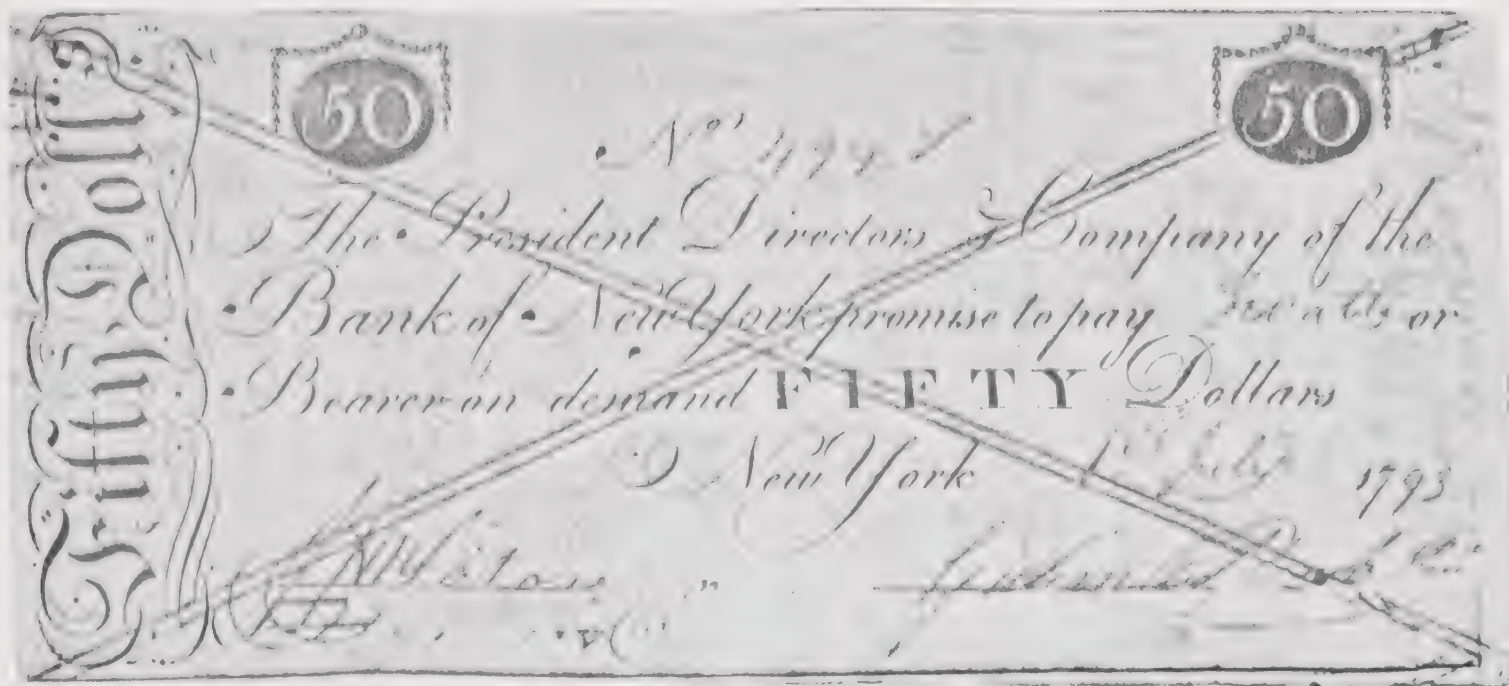 Fifty Doll
50 50
No
The President Directors & Company of the
Bank of New York promise to pay or
Bearer on demand FIFTY Dollars
New York 1st July 1793